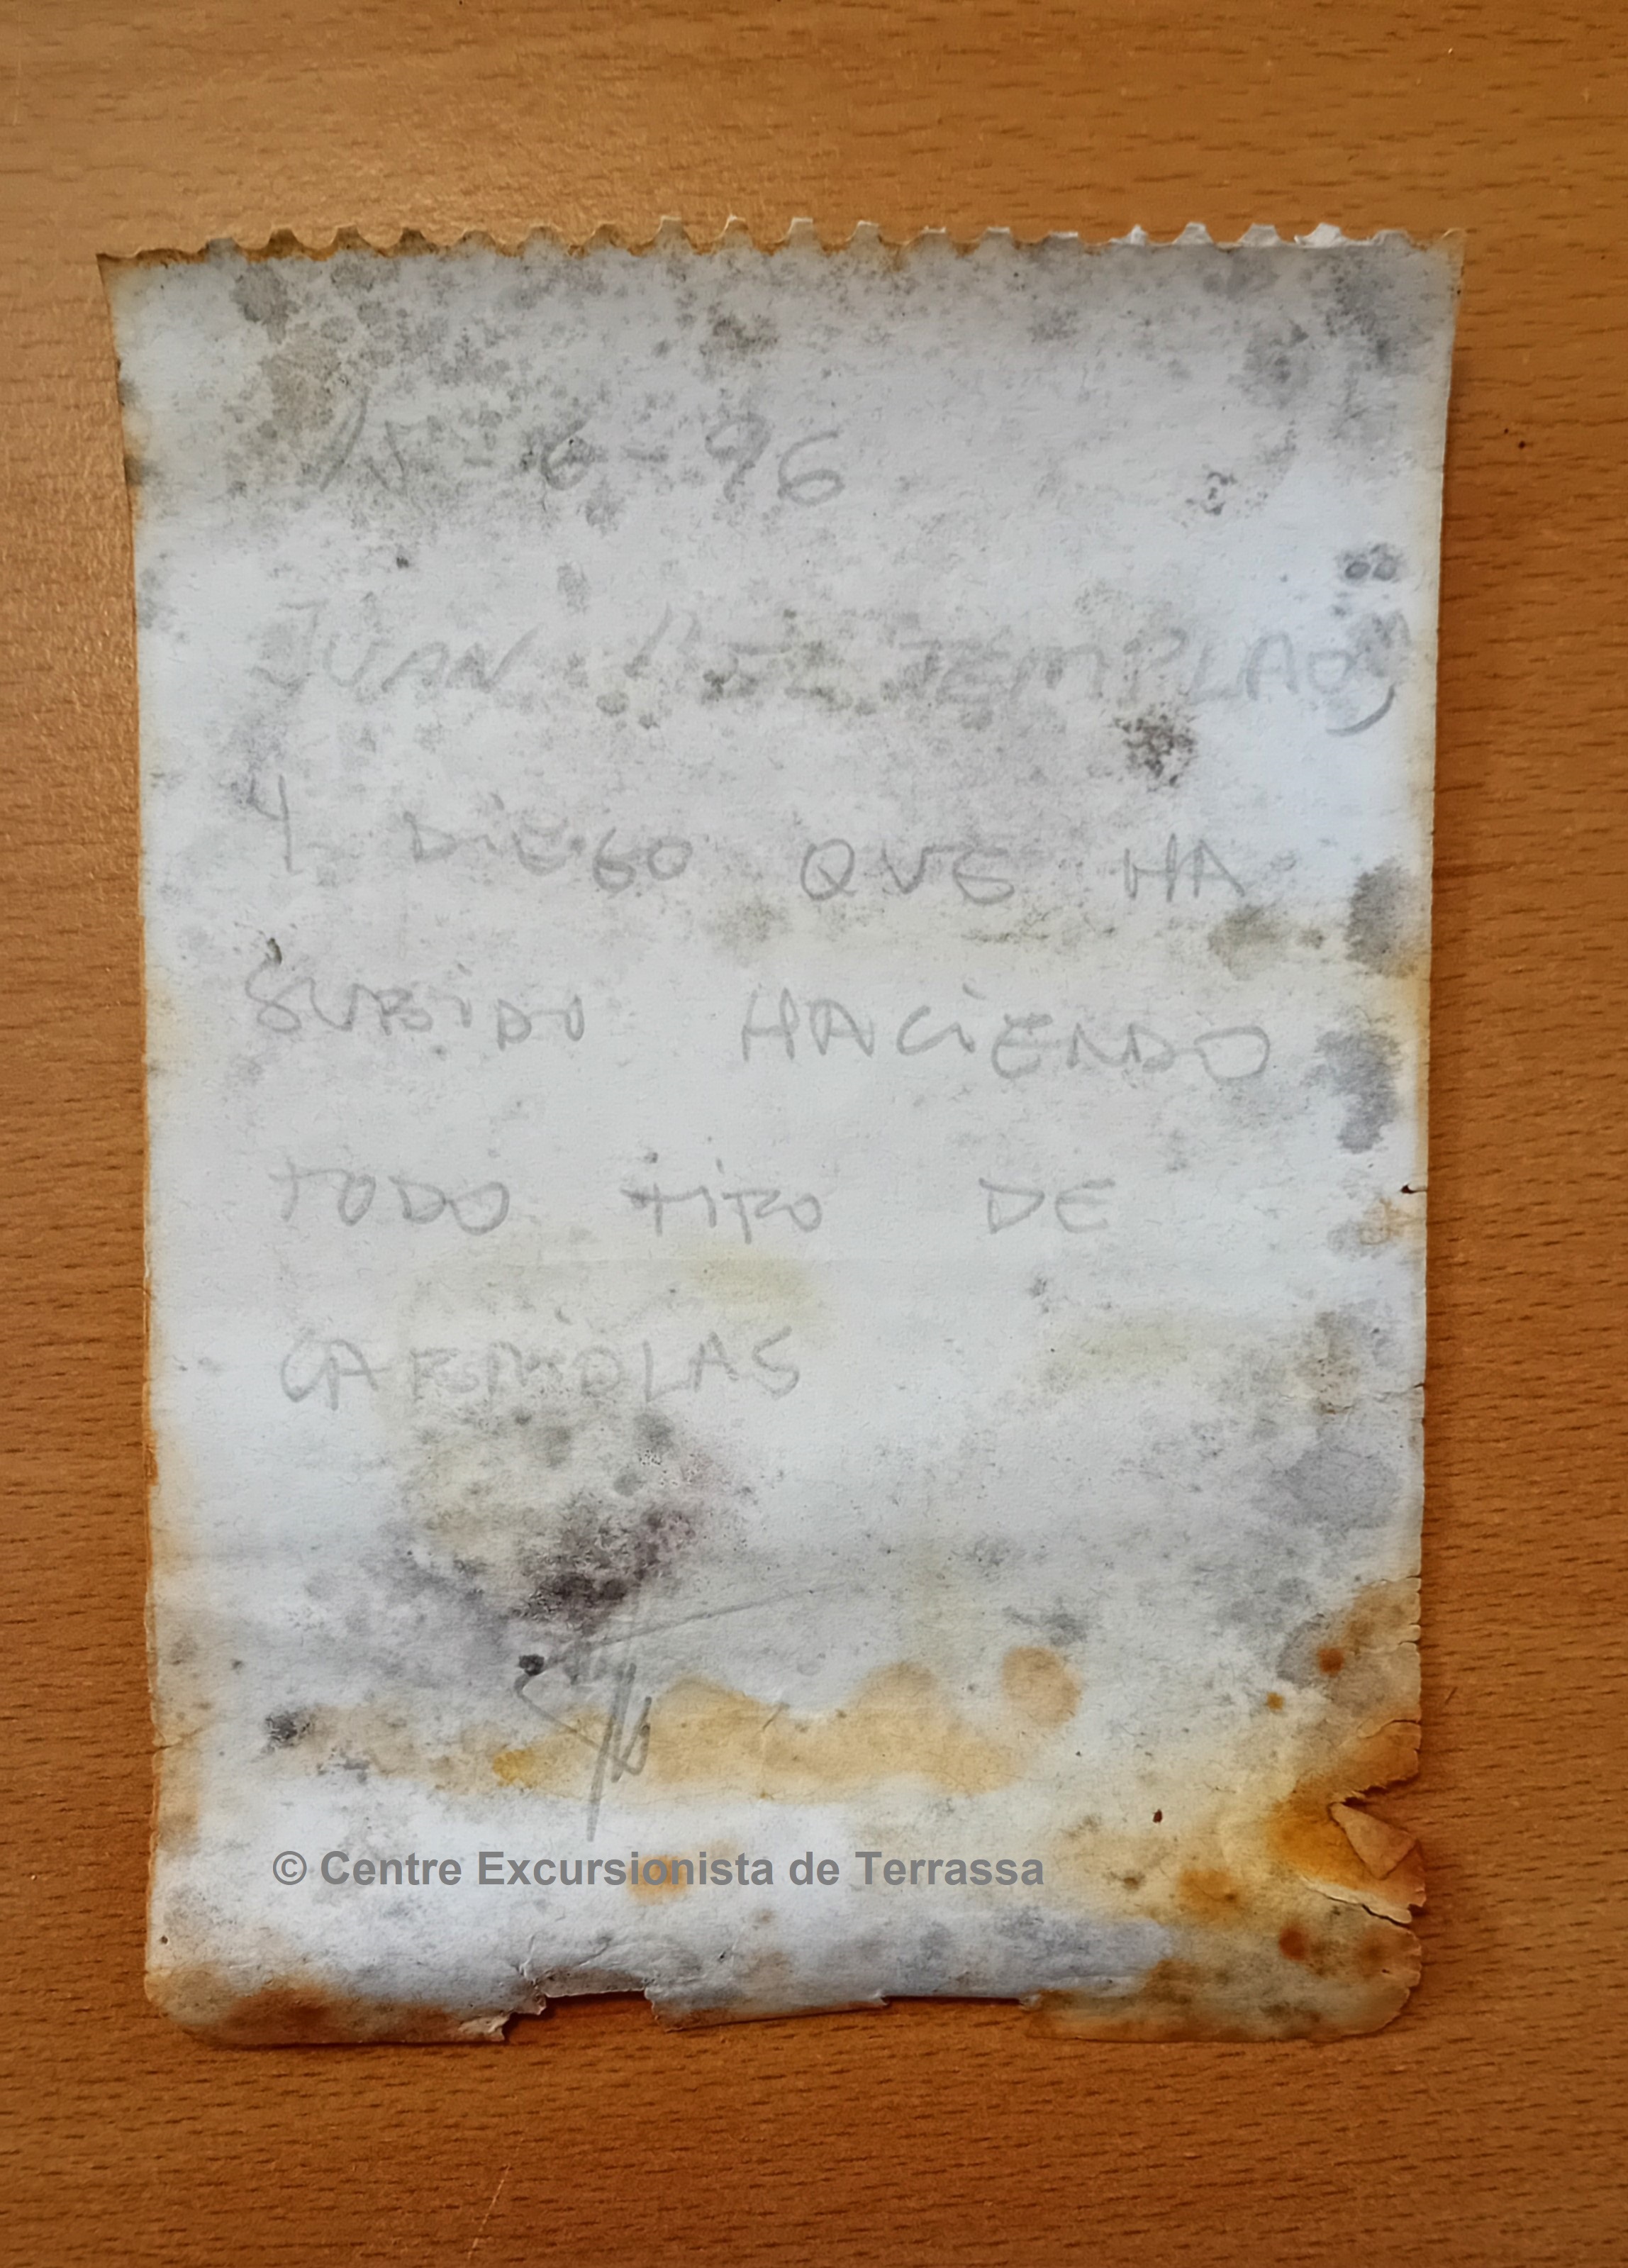 15-6-96
JUAN "EL TEMPLAO"
Y DIEGO QUE HA
SUBIDO HACIENDO
TODO TIPO DE
CABRIOLAS
© Centre Excursionista de Terrassa